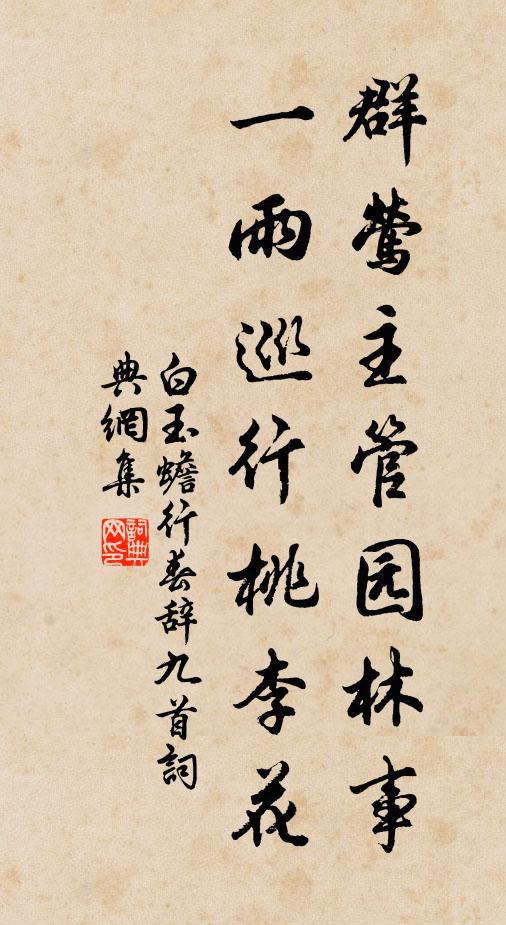 群莺主管园林事
一雨巡行桃李花
白玉蟾行春辞九首詞
典網集
詞典网印